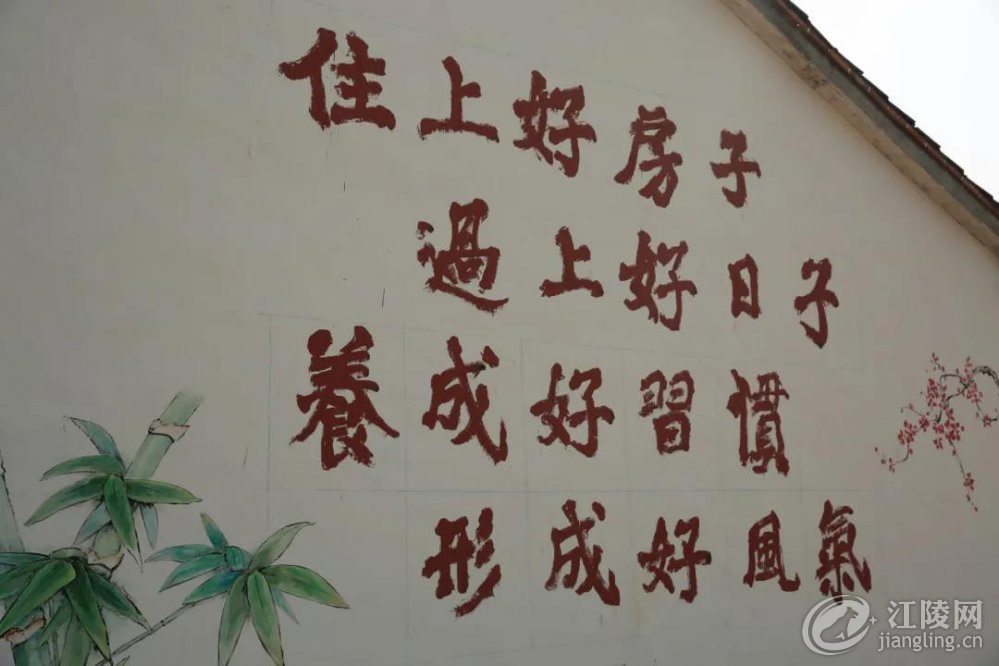 住上好房子
過上好日子
養成好習慣
形成好風氣
江陵网
jiangling.cn